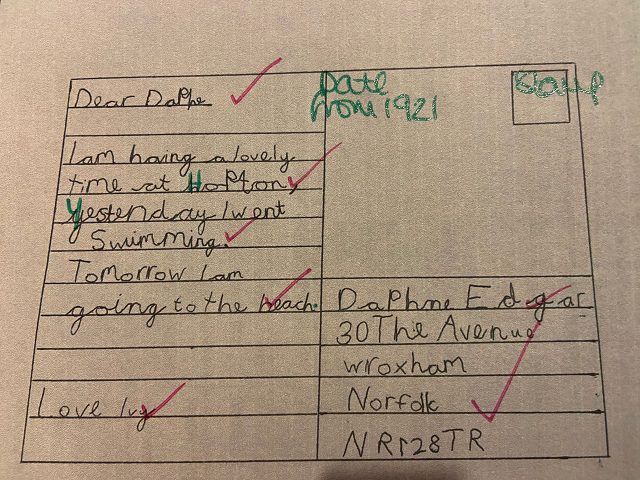 Dear Daphe
I am having a lovely
time at Hopton,
Yestenday I went
Swimming.
Tomorrow I am
going to the beach.
Love Ivy
Date
from 1921
Stamp
Daphne Edgar
30 The Avenue
wroxham
Norfolk
NR128TR